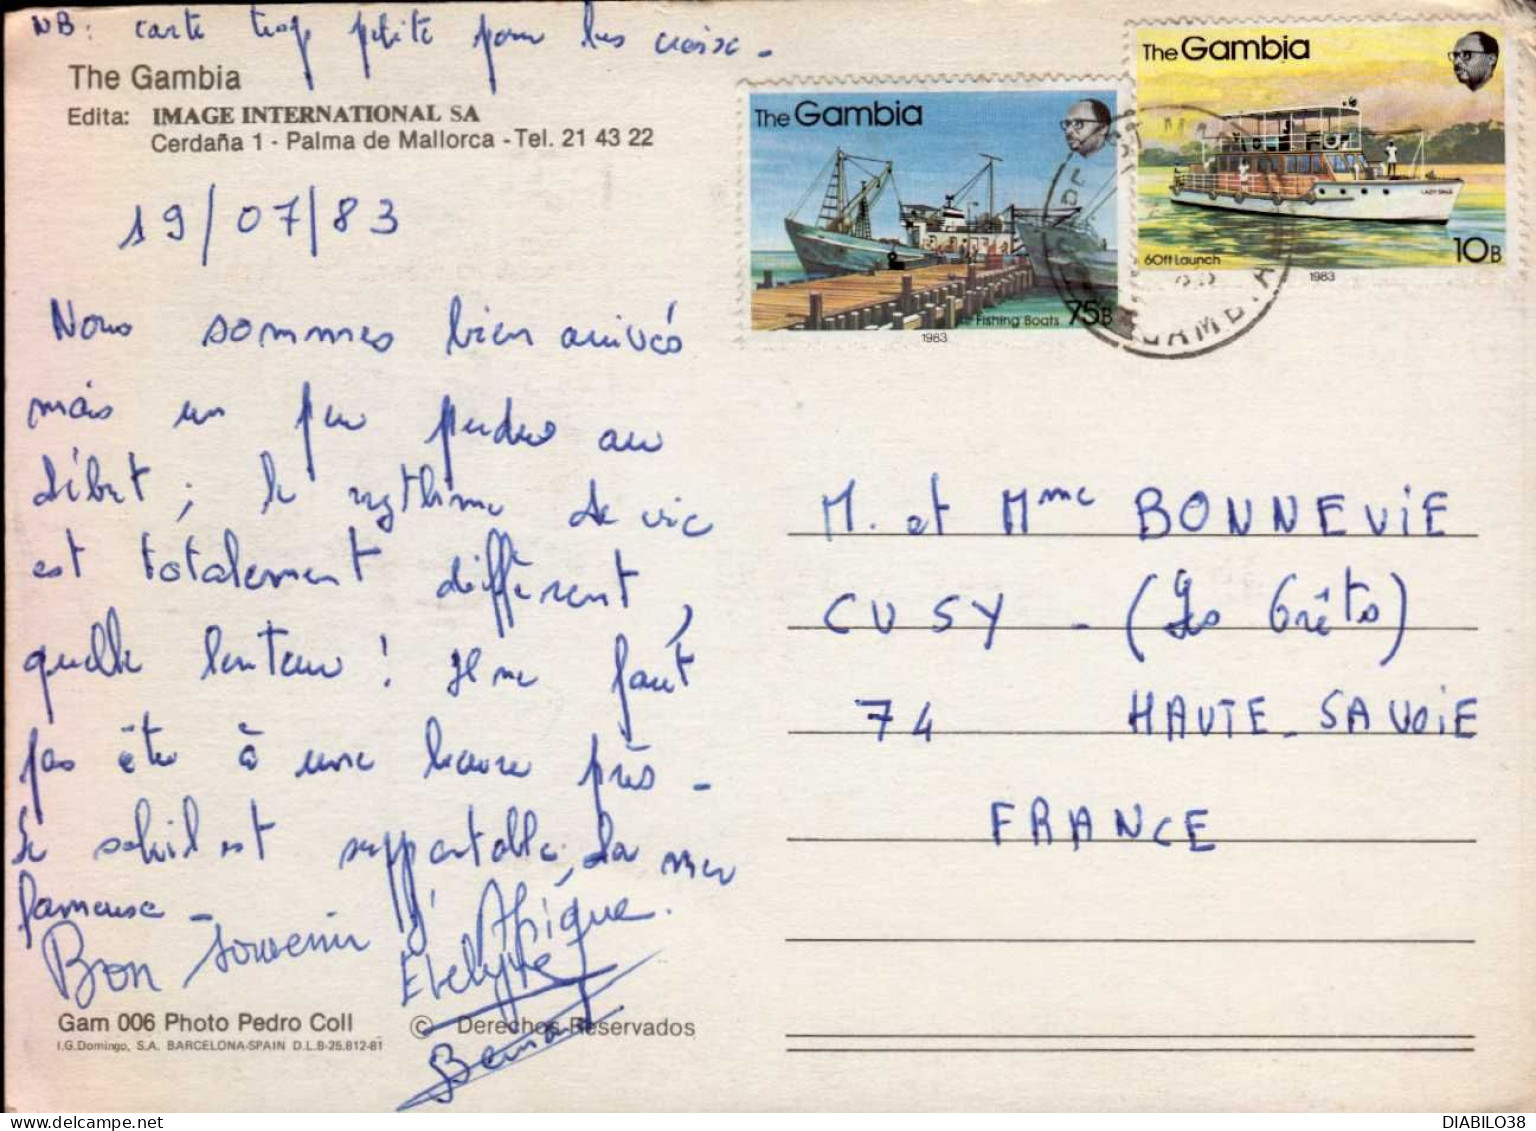 NB: carte trop petite pour les croix -
The Gambia
Edita: IMAGE INTERNATIONAL SA
Cerdaña 1 - Palma de Mallorca - Tel. 21 43 22
19/07/83
Nous sommes bien arrivés
mais un peu perdus au
début ; le rythme de vie
est totalement différent,
quelle lenteur ! Il ne faut
pas être à une heure près -
Le soleil est supportable, la mer
fameuse -
Bon souvenir d'Afrique.
Evelyne
Bernard
Gam 006 Photo Pedro Coll
© Derechos Reservados
I.G.Domingo, S.A. BARCELONA-SPAIN D.L.B-25.812-81
The Gambia
Fishing Boats 75B
1983
The Gambia
LADY DAWDA
60ft Launch 10B
1983
GAMBIA
M. et Mme BONNEVIE
CUSY - (Les Grêts)
74 HAUTE-SAVOIE
FRANCE
DIABILO38